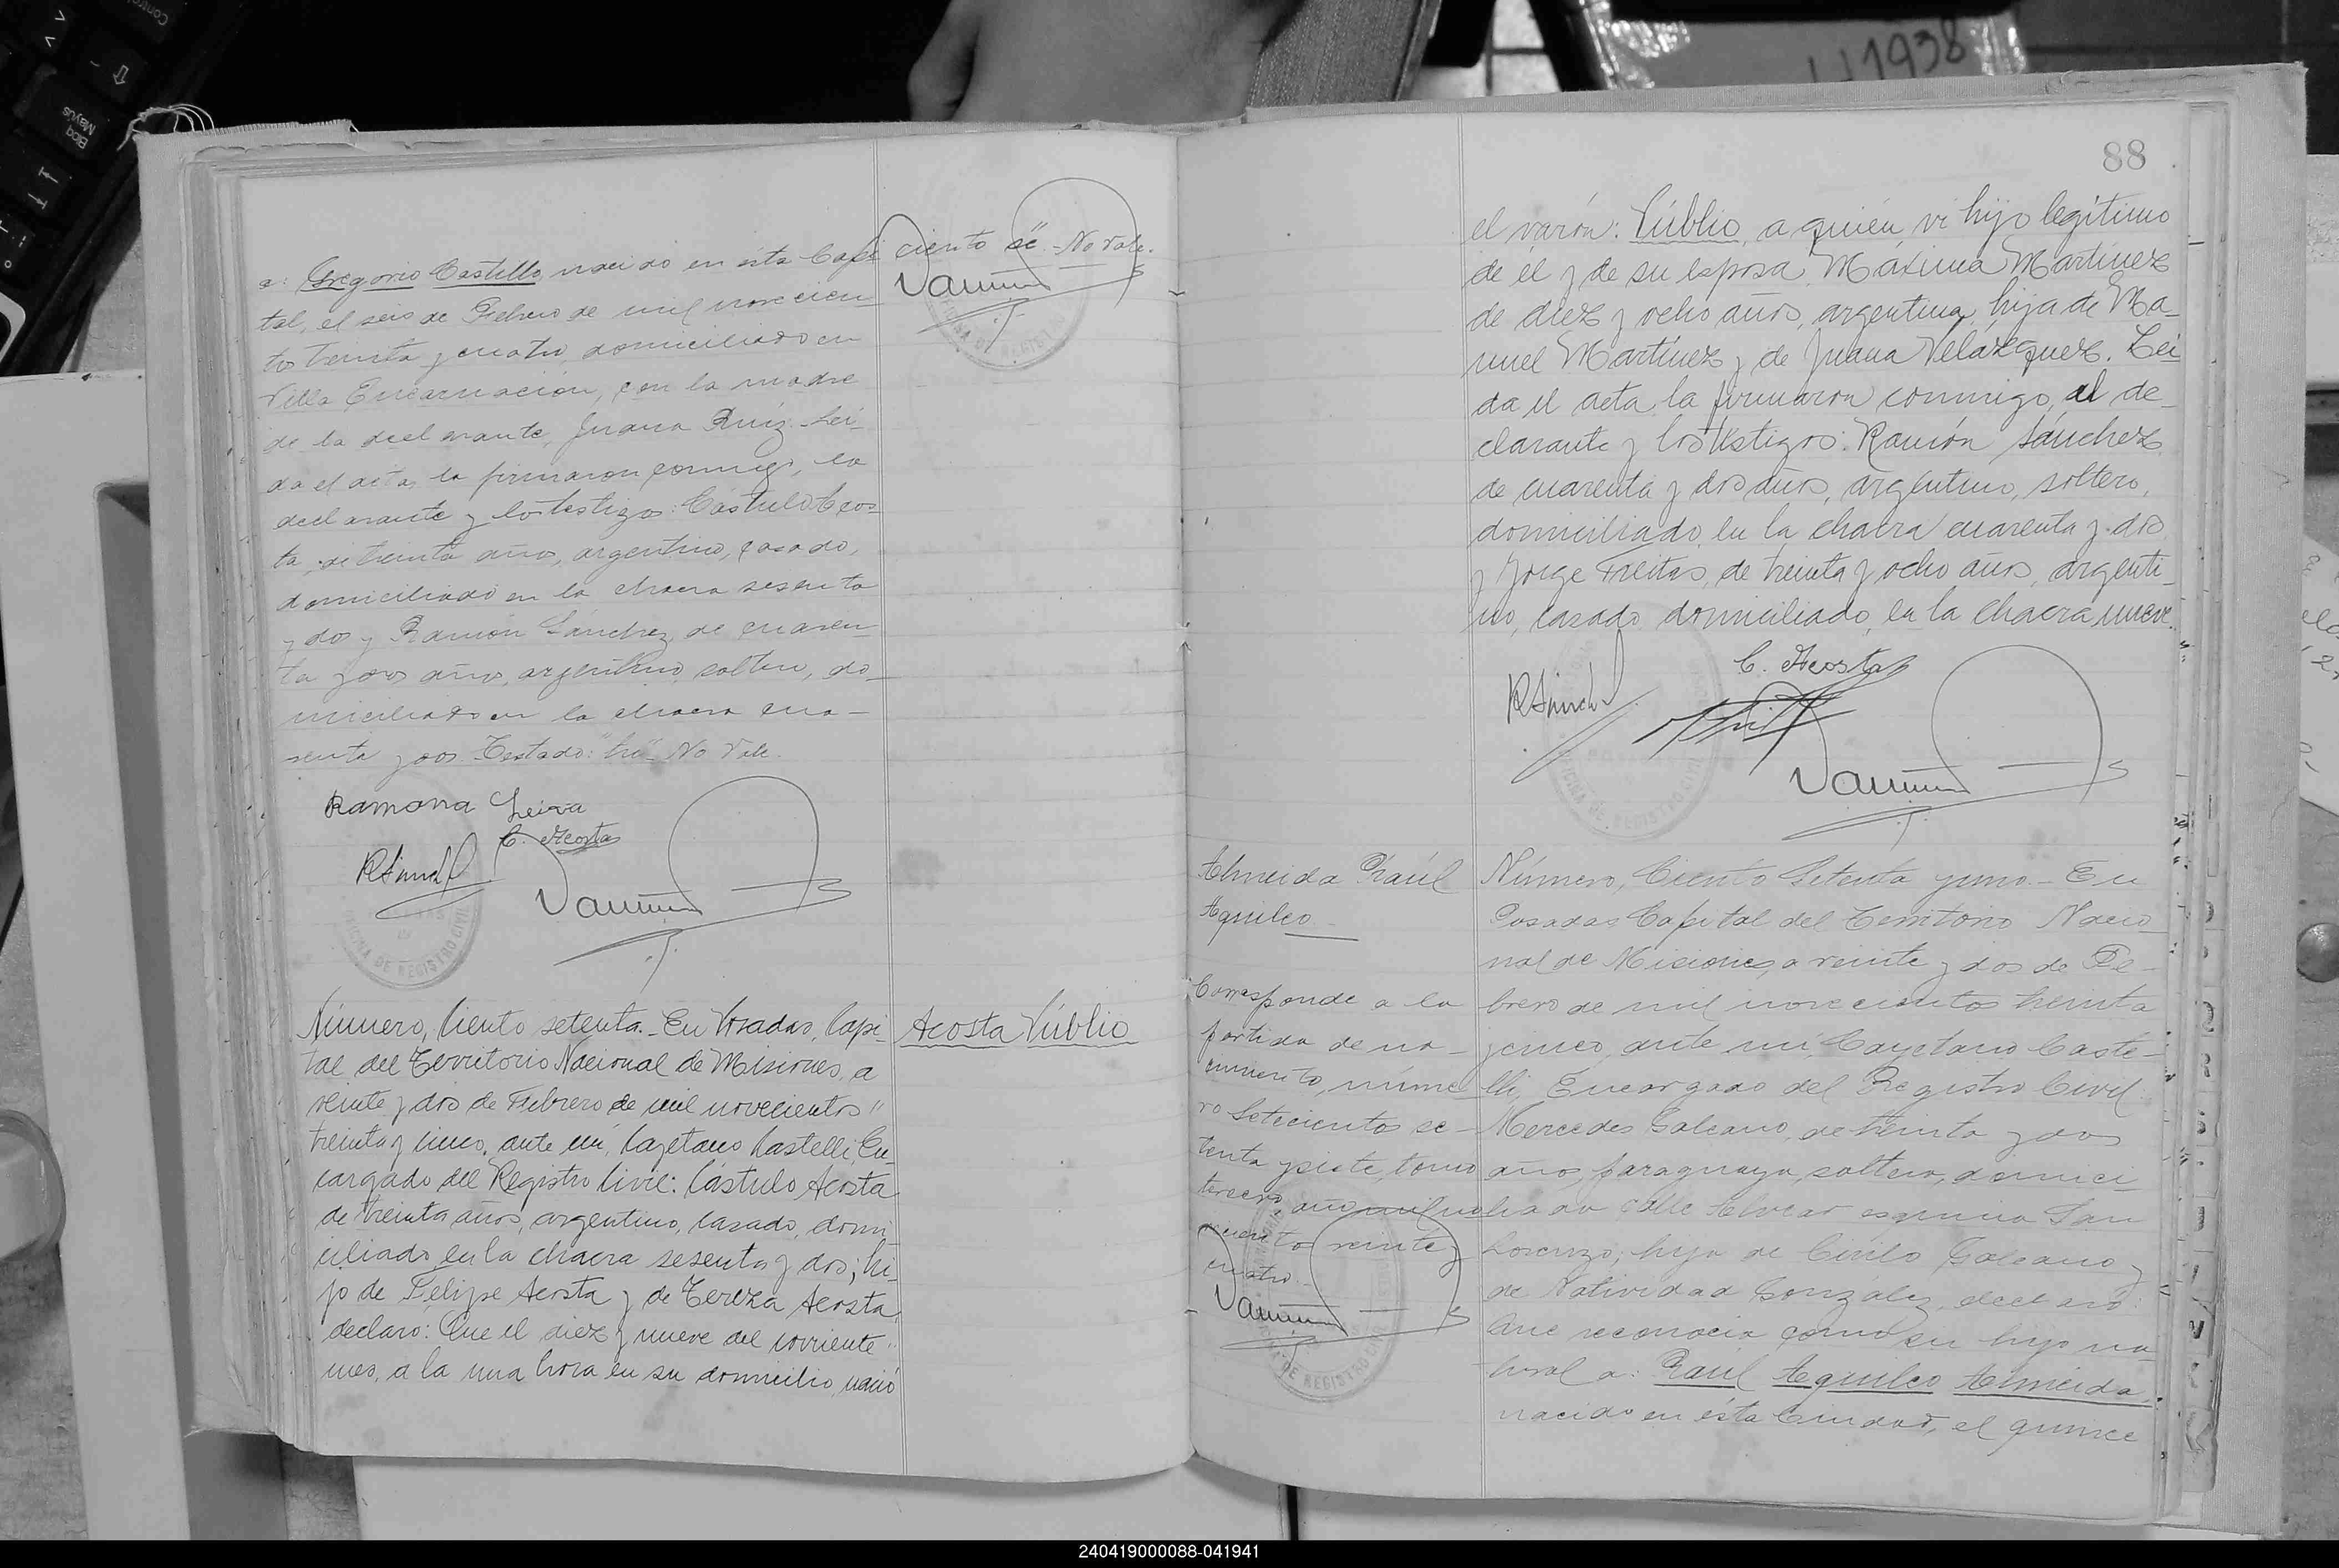 88
a: Gregorio Castillo, nacido en esta Capi
tal, el seis de Febrero de mil novecien
to treinta y cuatro, domiciliado en
Villa Encarnación, con la madre
de la declarante, Juana Ruiz. Lei-
da el acta, la firmaron conmigo, la
declarante y los testigos: Cástulo Acos-
ta, de treinta años, argentino, casado,
domiciliado en la chacra sesenta
y dos y Ramón Sánchez, de cuaren
ta y dos años, argentino, soltero, do-
miciliado en la chacra cua-
renta y dos. Testado: No Vale.
ciento No Vale.
Ramona Leiva
C. Acosta
RSánchez
Número, Ciento setenta.- En Posadas, Capi-
tal del Territorio Nacional de Misiones, a
veinte y dos de Febrero de mil novecientos "
treinta y cinco, ante mí, Cayetano Castelli, En-
cargado del Registro Civil: Cástulo Acosta
de treinta años, argentino, casado, domi-
ciliado en la chacra sesenta y dos; hi-
jo de Felipe Acosta y de Tereza Acosta,
declaro: Que el diez y nueve del corriente "
mes, a la una hora en su domicilio, nació
Acosta Públio
el varón: Públio, a quién vi hijo legítimo
de él y de su esposa, Máxima Martinez
de diez y ocho años, argentina, hija de Ma-
nuel Martínez y de Juana Velazquez. Lei
da el acta la firmaron conmigo, el de-
clarante y los testigos: Ramón Sánchez
de cuarenta y dos años, argentino, soltero,
domiciliado en la chacra cuarenta y dos
y Jorge Freitas, de treinta y ocho años, argenti-
no, casado domiciliado, en la chacra nueve.
C. Acosta
RSánchez
Almeida Raúl
Aquileo
Corresponde a la
partida de na-
cimiento, núme
ro Setecientos se-
tenta y siete, tomo
tercero, año mil no
veciento veinte y
cuatro.-
Número, Ciento Setenta y uno.- En
Posadas Capital del Territorio Nacio
nal de Misiones, a veinte y dos de Fe-
brero de mil novecientos treinta
y cinco, ante mí, Cayetano Caste-
lli, Encargado del Registro Civil
Mercedes Galeano, de treinta y dos
años, paraguaya, soltera, domici-
liada calle Alvear esquina San
Lorenzo; hija de Cirilo Galeano y
de Natividad González, declaró:
Que reconocía como su hijo na
tural a: Raúl Aquileo Almeida,
nacido en ésta Ciudad, el quince
240419000088-041941